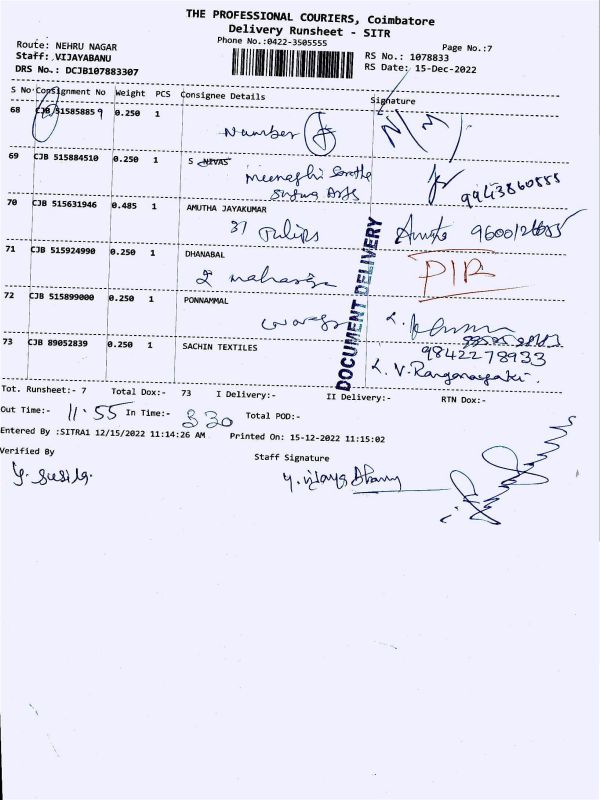 THE PROFESSIONAL COURIERS, Coimbatore
Delivery Runsheet - SITR
Phone No.:0422-3505555
Page No.:7
Route: NEHRU NAGAR
Staff: VIJAYABANU
DRS No.: DCJB107883307
RS No.: 1078833
RS Date: 15-Dec-2022
S No Consignment No Weight PCS Consignee Details Signature
68 CJB 515858859 0.250 1
Number
69 CJB 515884510 0.250 1 S NIVAS
Meenaghi
9943860555
70 CJB 515631946 0.485 1 AMUTHA JAYAKUMAR
37 Tulips
71 CJB 515924990 0.250 1 DHANABAL
2
72 CJB 515899000 0.250 1 PONNAMMAL
73 CJB 89052839 0.250 1 SACHIN TEXTILES
9842278933
V. Ranganayaki.
DOCUMENT DELIVERY
Tot. Runsheet:- 7 Total Dox:- 73 I Delivery:- II Delivery:- RTN Dox:-
Out Time:- 11.55 In Time:- 330 Total POD:-
Entered By :SITRA1 12/15/2022 11:14:26 AM Printed On: 15-12-2022 11:15:02
Verified By Staff Signature